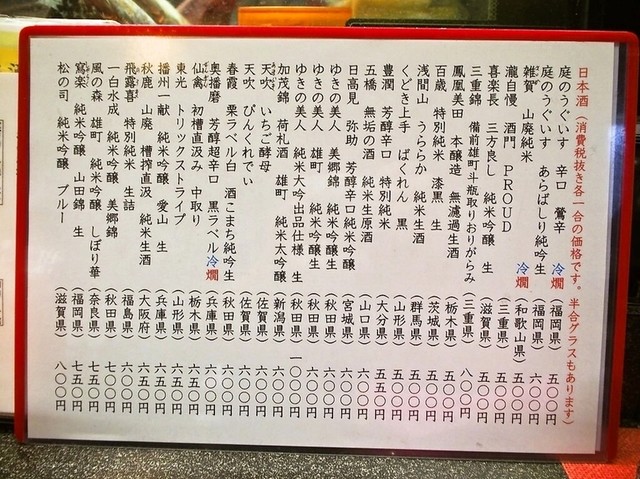 日本酒（消費税抜き各一合の価格です。半合グラスもあります）
庭のうぐいす 辛口 鶯辛 冷燗（福岡県）五〇〇円
庭のうぐいす あらばしり純吟生（福岡県）六〇〇円
雑賀 山廃純米 冷燗（和歌山県）五〇〇円
瀧自慢 酒門 PROUD（三重県）五〇〇円
喜楽長 三方良し 純米吟醸 生（滋賀県）五〇〇円
三重錦 備前雄町斗瓶取りおりがらみ（三重県）八〇〇円
鳳凰美田 本醸造 無濾過生酒（栃木県）五〇〇円
百歳 特別純米 漆黒 生（茨城県）五〇〇円
浅間山 うららか 純米生酒（群馬県）五〇〇円
くどき上手 ばくれん 黒（山形県）五〇〇円
豊潤 芳醇辛口 特別純米（大分県）五五〇円
五橋 無垢の酒 純米生原酒（山口県）五〇〇円
日高見 弥助 芳醇辛口純米吟醸（宮城県）六〇〇円
ゆきの美人 美郷錦 純米吟醸生（秋田県）六〇〇円
ゆきの美人 雄町 純米吟醸生（秋田県）六〇〇円
ゆきの美人 純米大吟出品仕様 生（秋田県）一〇〇〇円
加茂錦 荷札酒 雄町 純米大吟醸（新潟県）六〇〇円
天吹 いちご酵母（佐賀県）六〇〇円
天吹 ぴんくれでぃ（佐賀県）六〇〇円
春霞 栗ラベル白 酒こまち純吟生（秋田県）六〇〇円
奥播磨 芳醇超辛口 黒ラベル冷燗（兵庫県）六〇〇円
仙禽 初槽直汲み 中取り（栃木県）六五〇円
東光 トリックスストライプ（山形県）六五〇円
播州一献 純米吟醸 愛山 生（兵庫県）六五〇円
秋鹿 山廃 槽搾直汲 純米生酒（大阪府）六五〇円
飛露喜 特別純米 生詰（福島県）六五〇円
一白水成 純米吟醸 美郷錦（秋田県）七〇〇円
風の森 雄町 純米吟醸 しぼり華（奈良県）七五〇円
寫楽 純米吟醸 山田錦 生（福岡県）七五〇円
松の司 純米吟醸 ブルー（滋賀県）八〇〇円